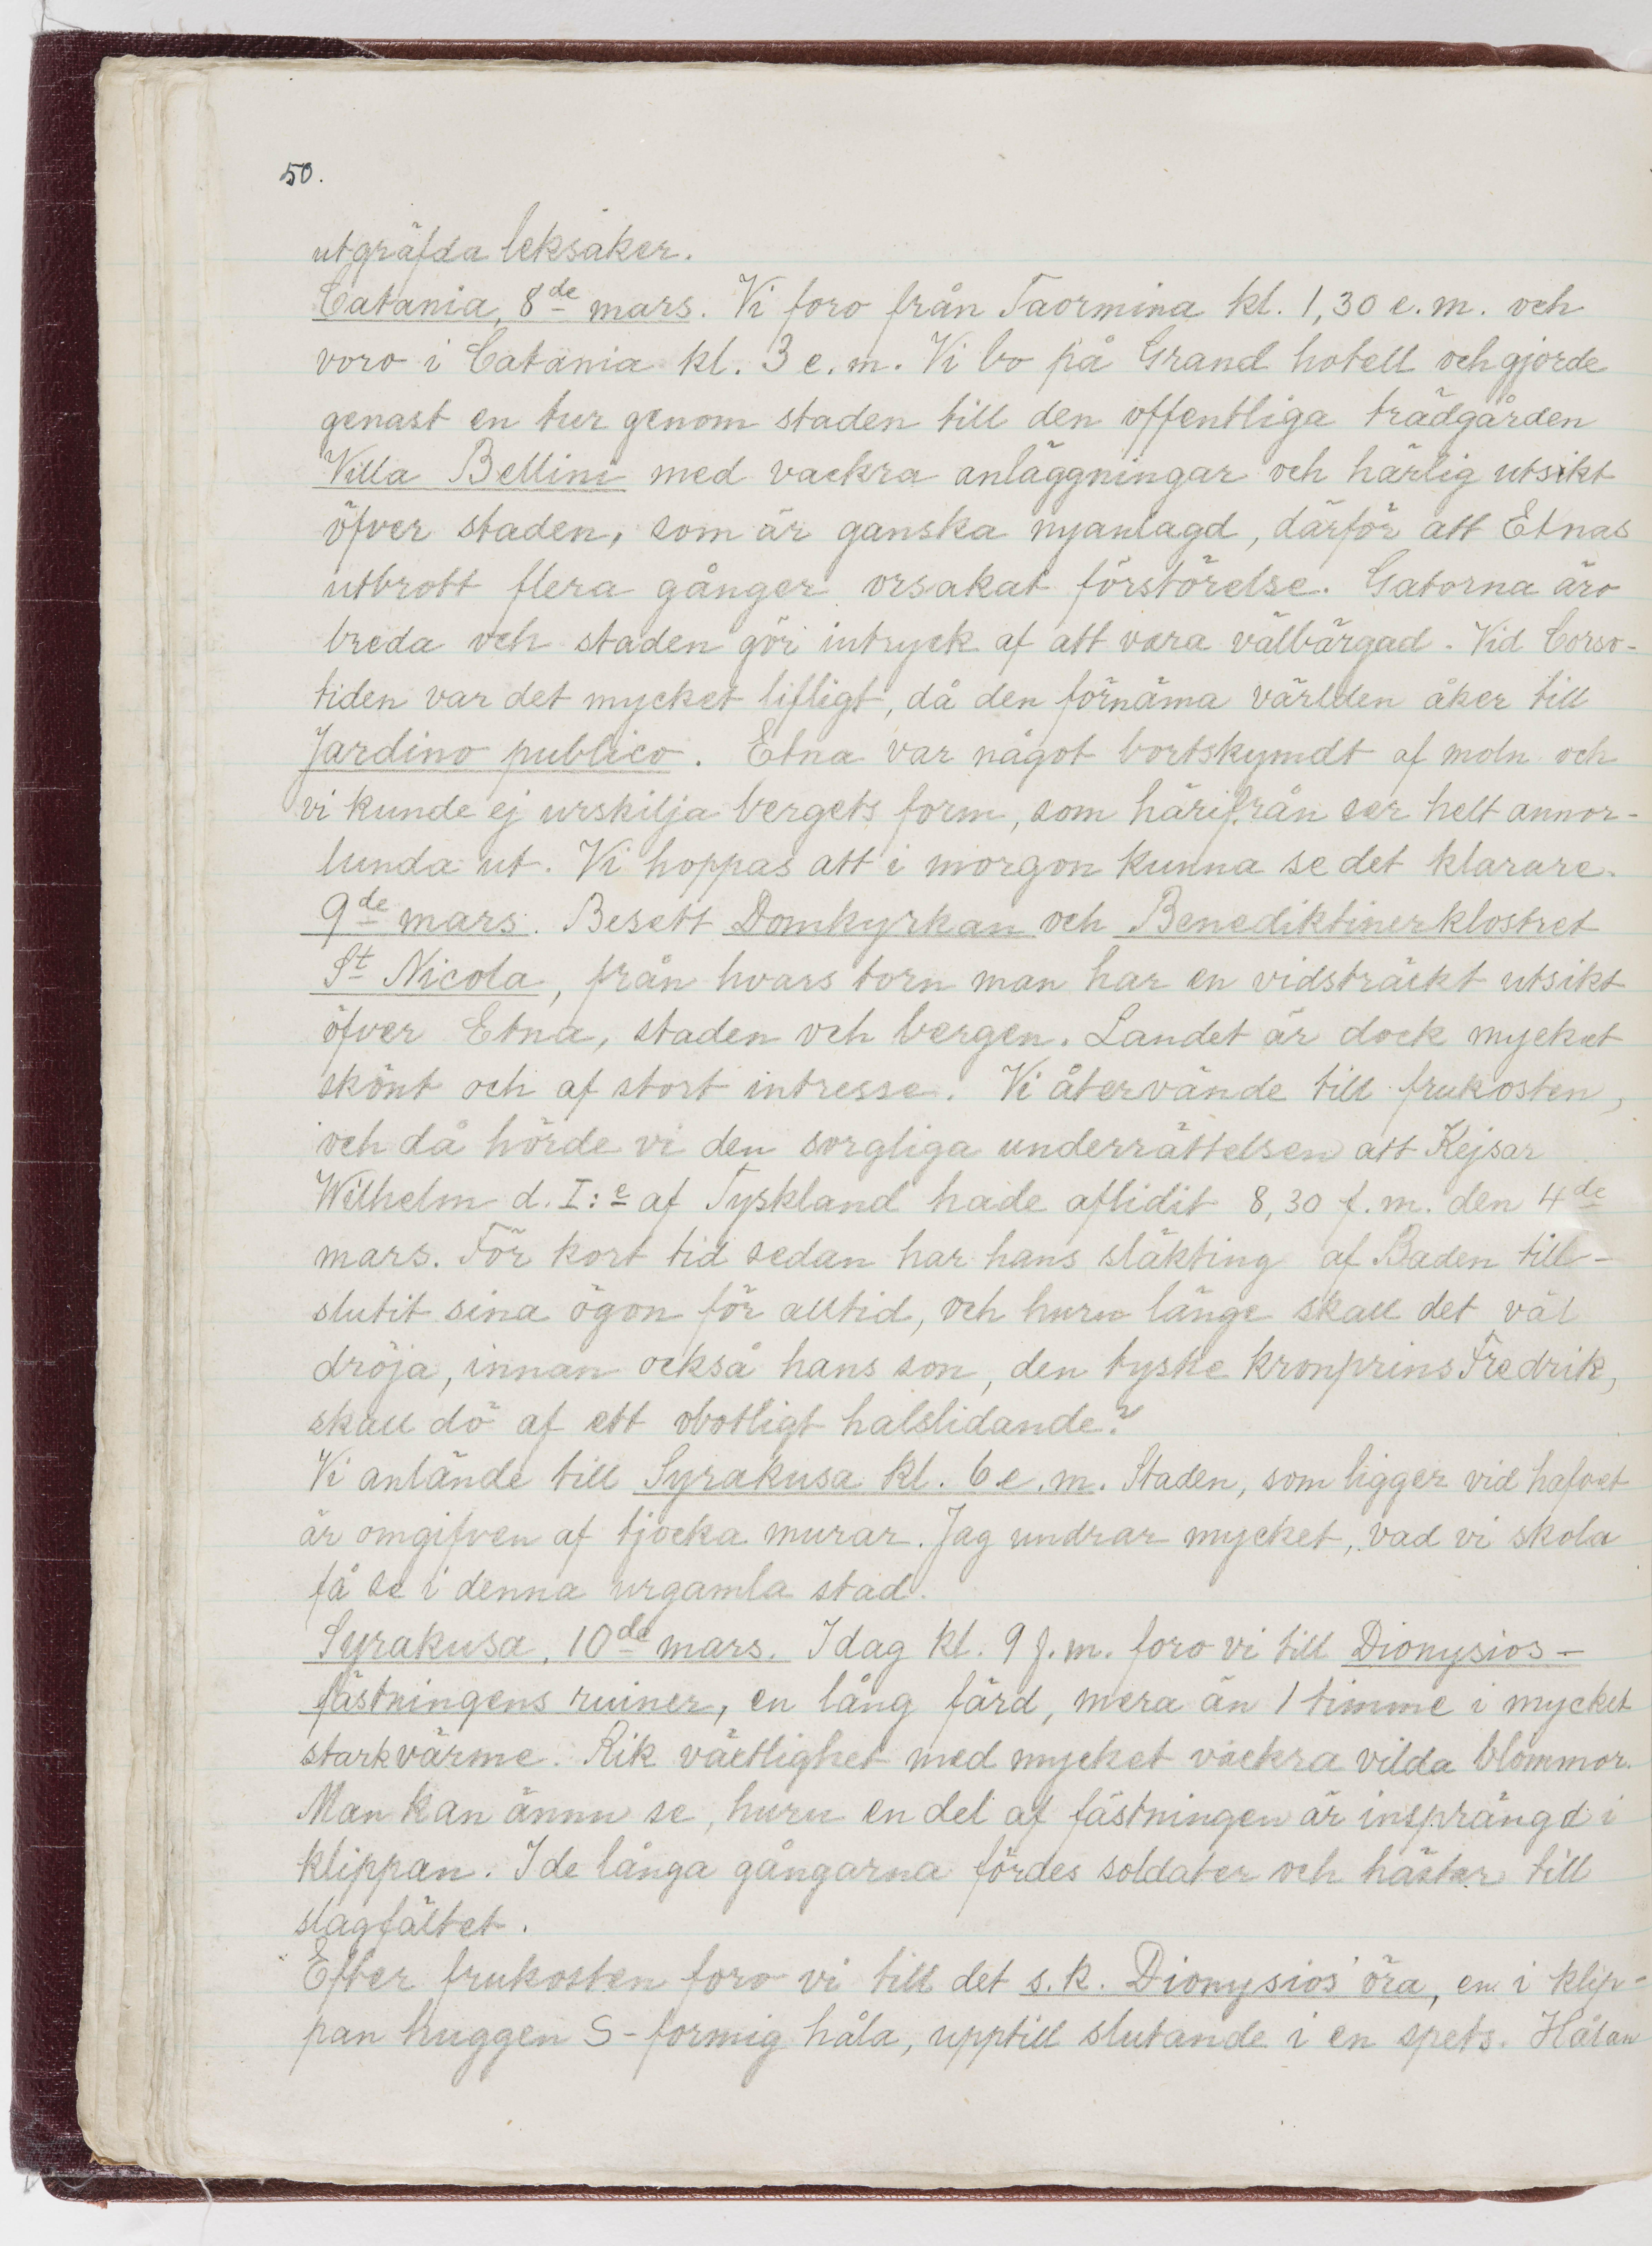 50.
utgräfda leksaker.
Catania, 8de mars. Vi foro från Taormina kl. 1,30 e.m. och
voro i Catania kl. 3 e.m. Vi bo på Grand hotell och gjorde
genast en tur genom staden till den offentliga trädgården
Villa Bellini med vackra anläggningar och härlig utsikt
öfver staden, som är ganska nyanlagd, därför att Etnas
utbrott flera gånger orsakat förstörelse. Gatorna äro
breda och staden gör intryck af att vara välbärgad. Vid Corso-
tiden var det mycket lifligt, då den förnäma världen åker till
Jardino publico. Etna var något bortskymdt af moln och
vi kunde ej urskilja bergets form, som härifrån ser helt annor-
lunda ut. Vi hoppas att i morgon kunna se det klarare.
9de mars. Besett Domkyrkan och Benediktinerklostret
St Nicola, från hvars torn man har en vidsträckt utsikt
öfver Etna, staden och bergen. Landet är dock mycket
skönt och af stort intresse. Vi återvände till frukosten,
och då hörde vi den sorgliga underrättelsen att Kejsar
Wilhelm d. I:e af Tyskland hade aflidit 8,30 f.m. den 4de
mars. För kort tid sedan har hans släkting af Baden till-
slutit sina ögon för alltid, och huru länge skall det väl
dröja, innan också hans son, den tyske kronprins Fredrik,
skall dö af ett obotligt halslidande?
Vi anlände till Syrakusa kl. 6 e.m. Staden, som ligger vid hafvet
är omgifven af tjocka murar. Jag undrar mycket, vad vi skola
få se i denna urgamla stad.
Syrakusa, 10de mars. Idag kl. 9 f.m. foro vi till Dionysios-
fästningens ruiner, en lång färd, mera än 1 timme i mycket
stark värme. Rik växtlighet med mycket vackra vilda blommor.
Man kan ännu se, huru en del af fästningen är insprängd i
klippan. I de långa gångarna fördes soldater och hästar till
slagfältet.
Efter frukosten foro vi till det s.k. Dionysios' öra, en i klip-
pan huggen S-formig håla, upptill slutande i en spets. Hålan